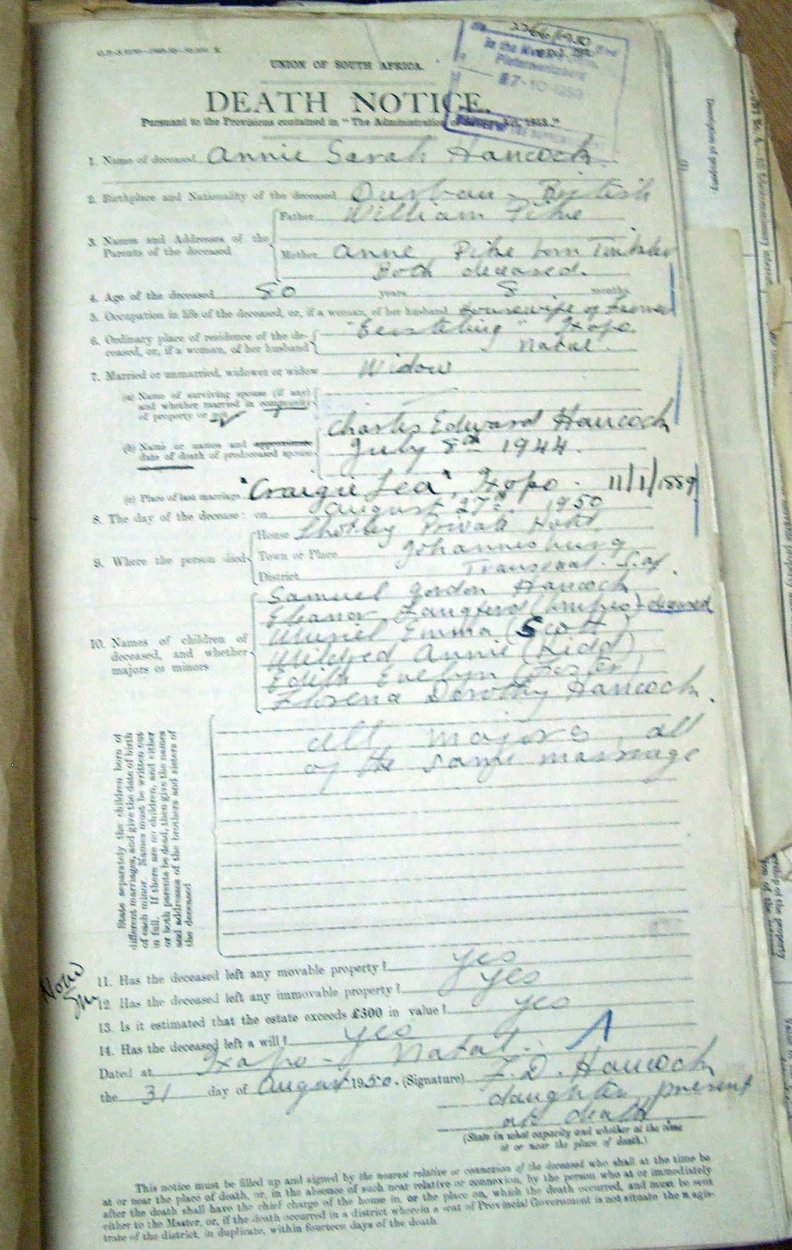 UNION OF SOUTH AFRICA.
DEATH NOTICE.
Pursuant to the Provisions contained in "The Administration of Estates Act, 1913."
In the
Pietermaritzburg
1. Name of deceased Annie Sarah Hancock
2. Birthplace and Nationality of the deceased Durban - British
3. Names and Addresses of the Parents of the deceased
Father William Pike
Mother Anne Pike born
Both deceased.
4. Age of the deceased 80 years 8 months
5. Occupation in life of the deceased, or, if a woman, of her husband Housewife of Farmer
6. Ordinary place of residence of the deceased, or, if a woman, of her husband
Ixopo
Natal.
7. Married or unmarried, widower or widow Widow
(a) Name of surviving spouse (if any) and whether married in community of property or not
(b) Name or names and approximate date of death of predeceased spouse
Charles Edward Hancock
July 8th 1944.
(c) Place of last marriage "Craigie Lea", Ixopo. 11/1/1889
8. The day of the decease: on August 27th 1950
9. Where the person died
House Private Hotel
Town or Place Johannesburg
District Transvaal. S.A.
10. Names of children of deceased, and whether majors or minors
Samuel Gordon Hancock
Eleanor Langford - deceased
Muriel Emma (Scott)
Mildred Annie (Kidd)
Edith Evelyn (Foster)
Florena Dorothy Hancock.
all majors, all
of the same marriage
State separately the children born of
different marriages, and give the date of birth
of each minor. Names must be written out
in full. If there are no children, and either
or both parents be dead, then give the names
and addresses of the brothers and sisters of
the deceased
11. Has the deceased left any movable property? yes
12. Has the deceased left any immovable property? yes
13. Is it estimated that the estate exceeds £300 in value? yes
14. Has the deceased left a will? yes
Dated at Ixopo - Natal.
the 31 day of August 1950. (Signature) F.D. Hancock
daughter present
at death.
(State in what capacity and whether at the time
at or near the place of death.)
This notice must be filled up and signed by the nearest relative or connexion of the deceased who shall at the time be
at or near the place of death, or, in the absence of such near relative or connexion, by the person who at or immediately
after the death shall have the chief charge of the house in, or the place on, which the death occurred, and must be sent
either to the Master, or, if the death occurred in a district wherein a seat of Provincial Government is not situate the magis-
trate of the district, in duplicate, within fourteen days of the death
Description of property